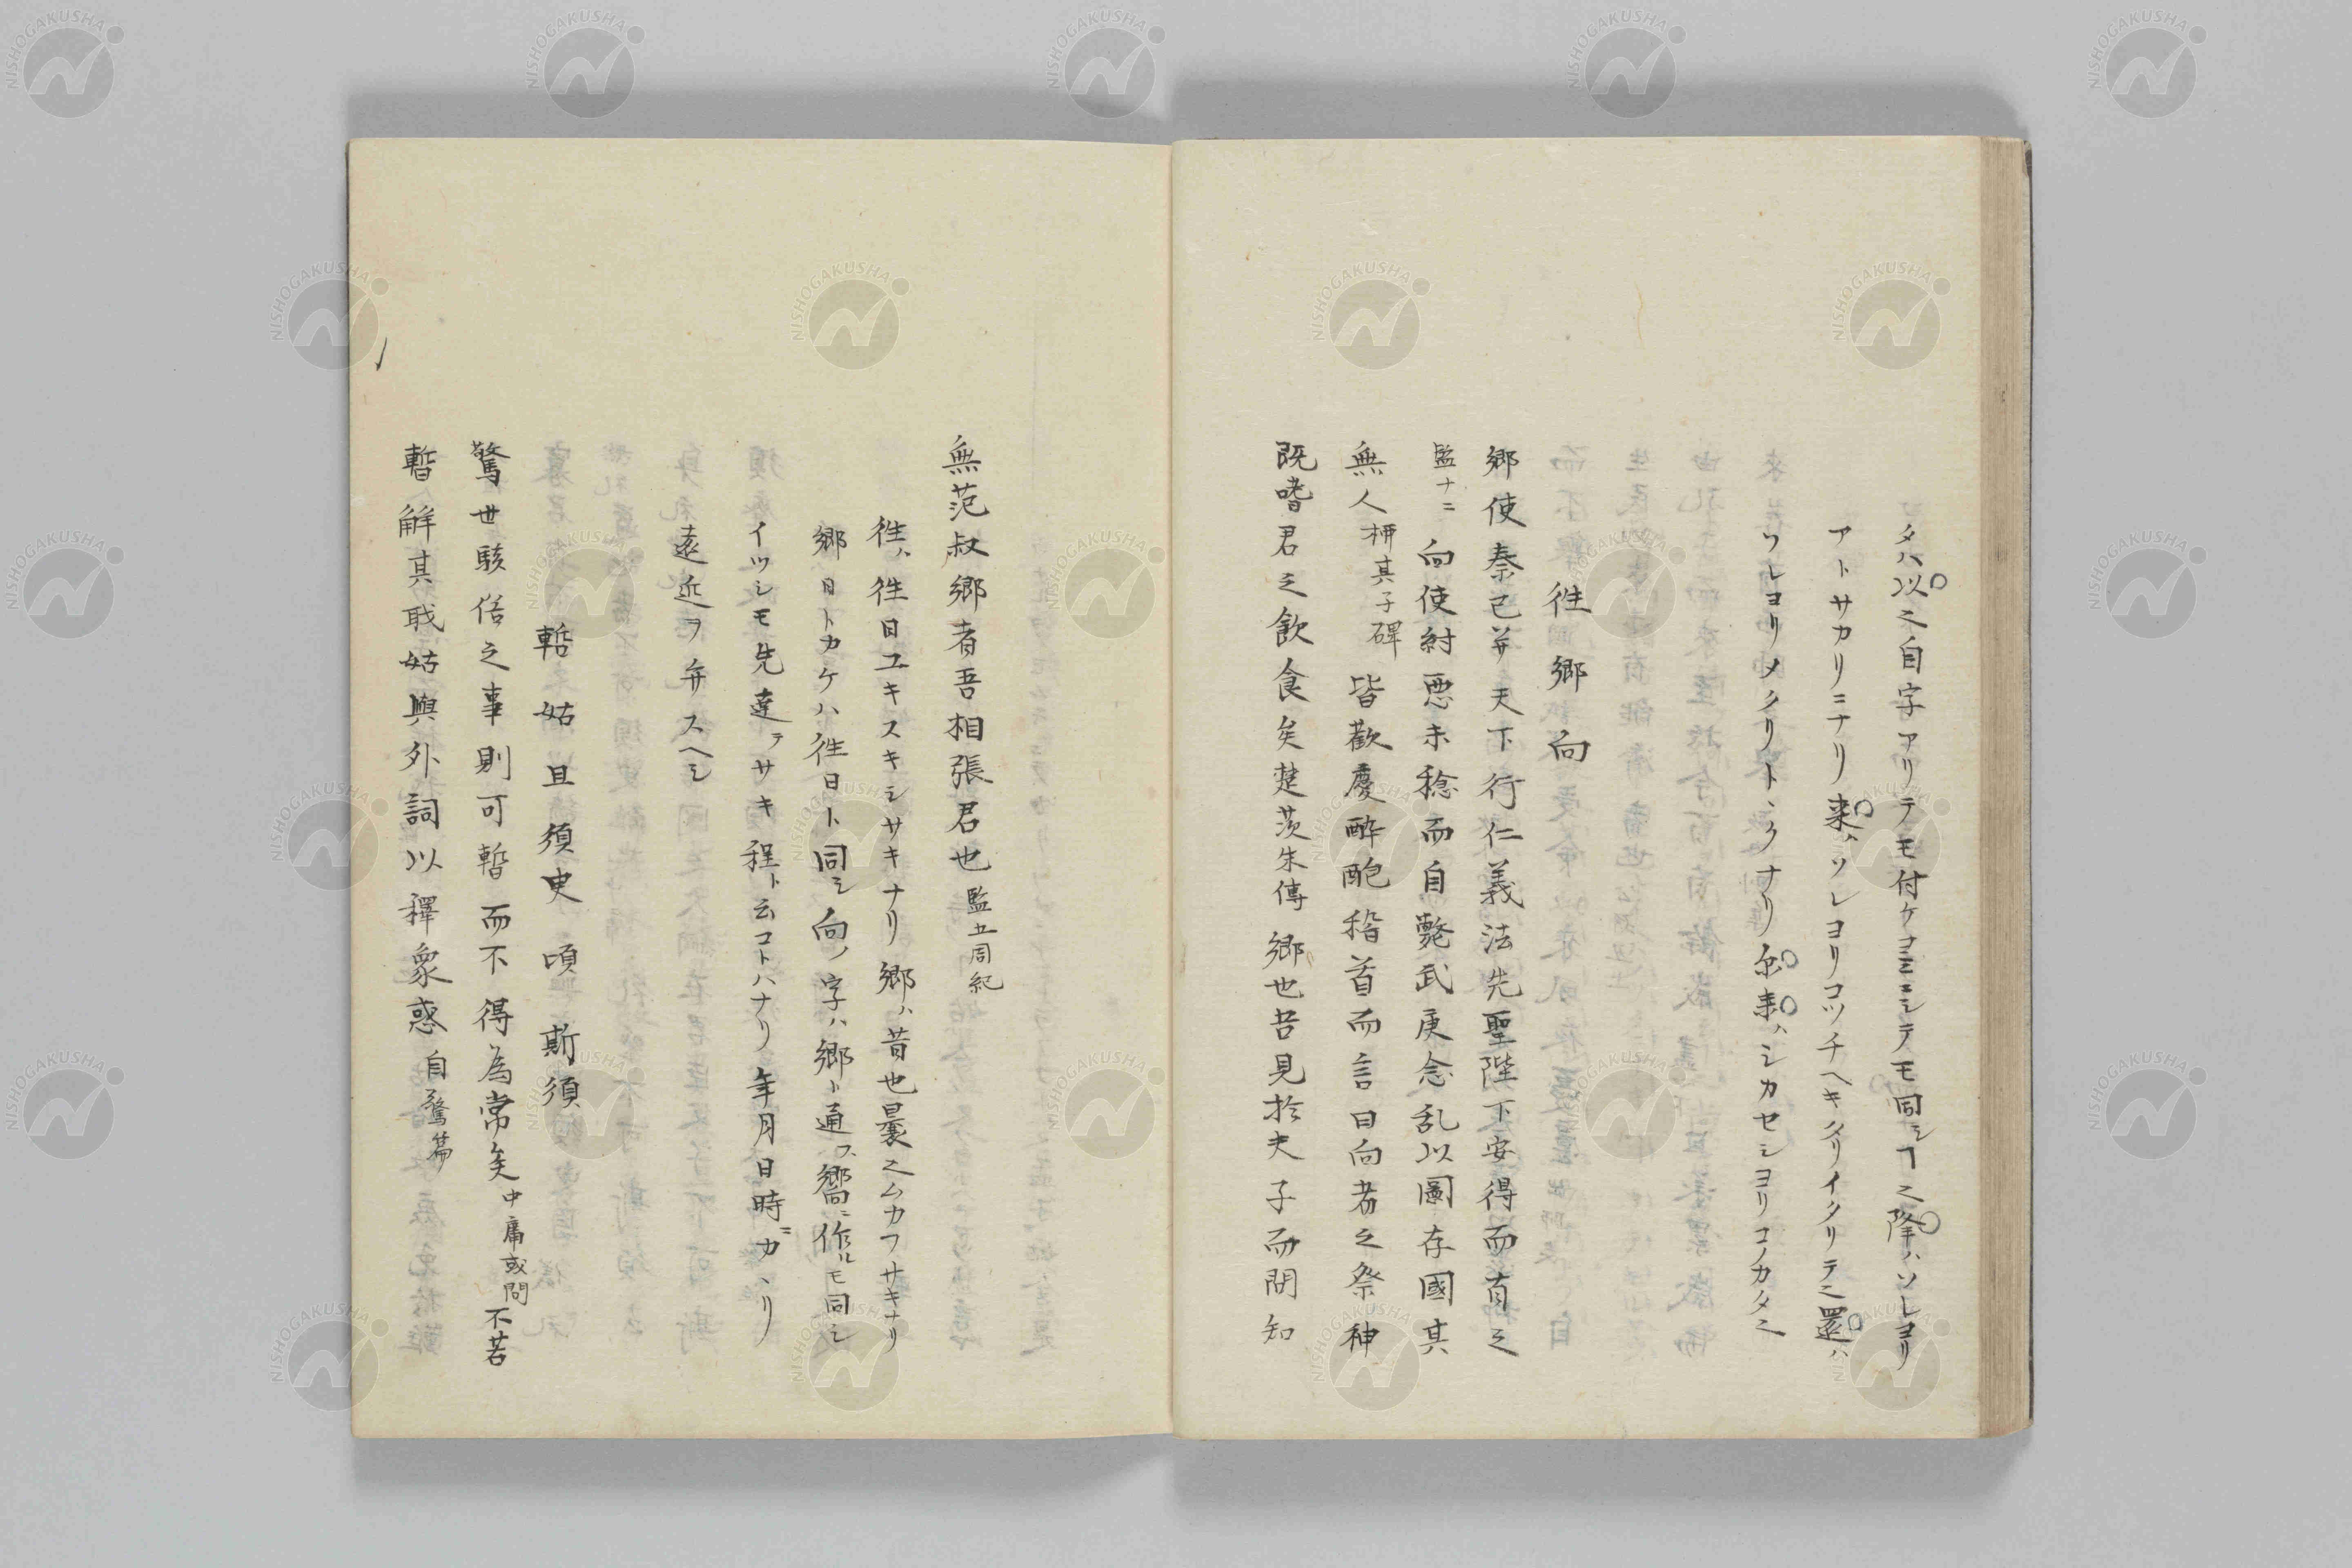 タハ以之自字アリテモ付ケヨミニシテモ同シヿ之降ハソレヨリ
アトサカリニナリ来ハソレヨリコツチヘキタリイタリテ之還ハ
ソレヨリメクリトヽクナリ尓来ハシカセシヨリコノカタ之
徃 郷 向
郷使秦已并天下行仁義法先聖陛下安得而有之
監十二 向使紂悪未稔而自斃武庚念乱以圖存國其
無人 柳其子碑 皆歡慶酔飽稽首而言曰向者之祭神
既嗜君之飲食矣楚茨朱傳 郷也吾見於夫子而問知
無范叔郷者吾相張君也 監五周紀
徃ハ徃日ユキスキシサキナリ郷ハ昔也曩之ムカフサキナリ
郷日トカケハ徃日ト同シ向ノ字ハ郷ト通フ嚮ニ作ルモ同シ
イツシモ先達テサキ程ト云コトハナリ年月日時ニカヽリ
遠近ヲ弁スヘシ
暫 姑 且 須臾 頃 斯須
驚世駭俗之事則可暫而不得為常矣 中庸或問 不若
暫解其戢姑與外詞以釋衆惑 自驚篇
NISHOGAKUSHA